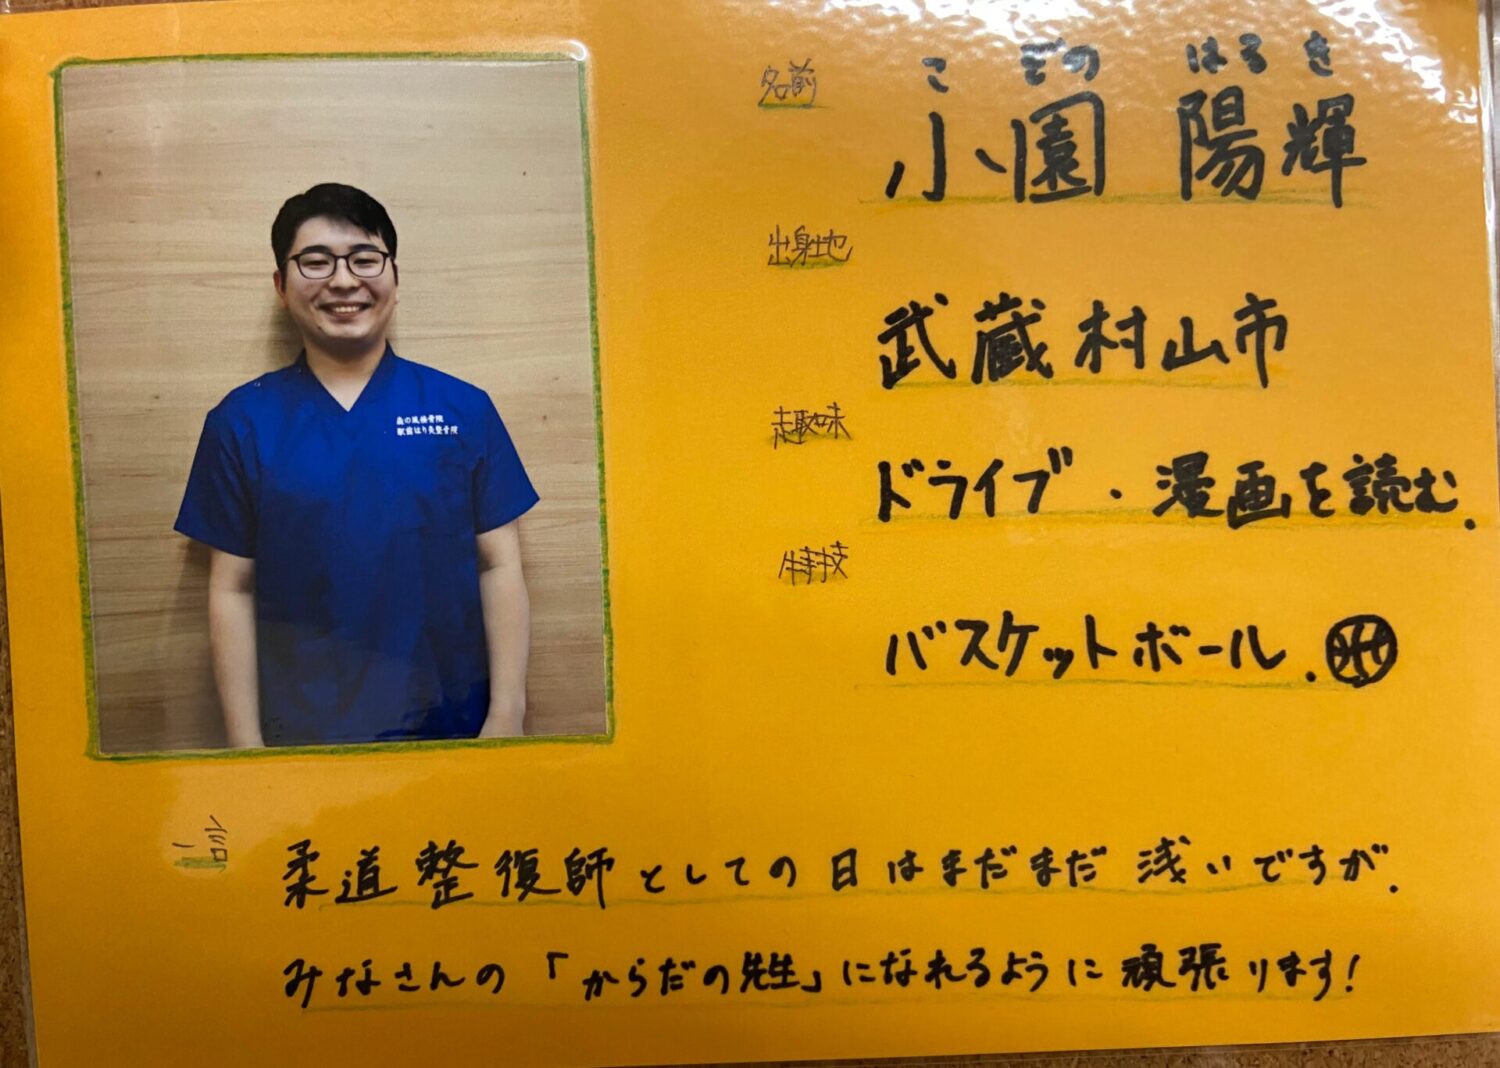 名前
こ ぞの はる き
小園 陽輝
出身地
武蔵村山市
趣味
ドライブ・漫画を読む.
特技
バスケットボール.
森の風接骨院
駅前はり灸整骨院
一言
柔道整復師としての日はまだまだ浅いですが.
みなさんの「からだの先生」になれるように頑張ります!